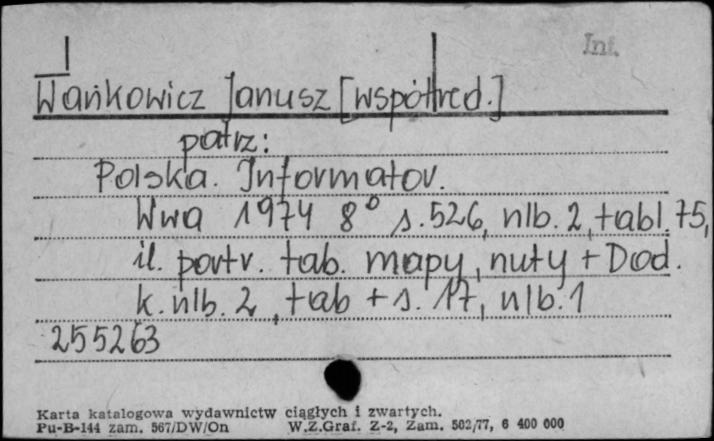 Int.
Wańkowicz Janusz [współred.]
patrz:
Polska. Informator.
Wwa 1974 8° s. 526, nlb. 2, tabl. 75,
il. portr. tab. mapy, nuty + Dod.
k. nlb. 2, tab + s. 17, nlb. 1
255263
Karta katalogowa wydawnictw ciągłych i zwartych.
Pu-B-144 zam. 567/DW/On W.Z.Graf. Z-2, Zam. 502/77, 6 400 000